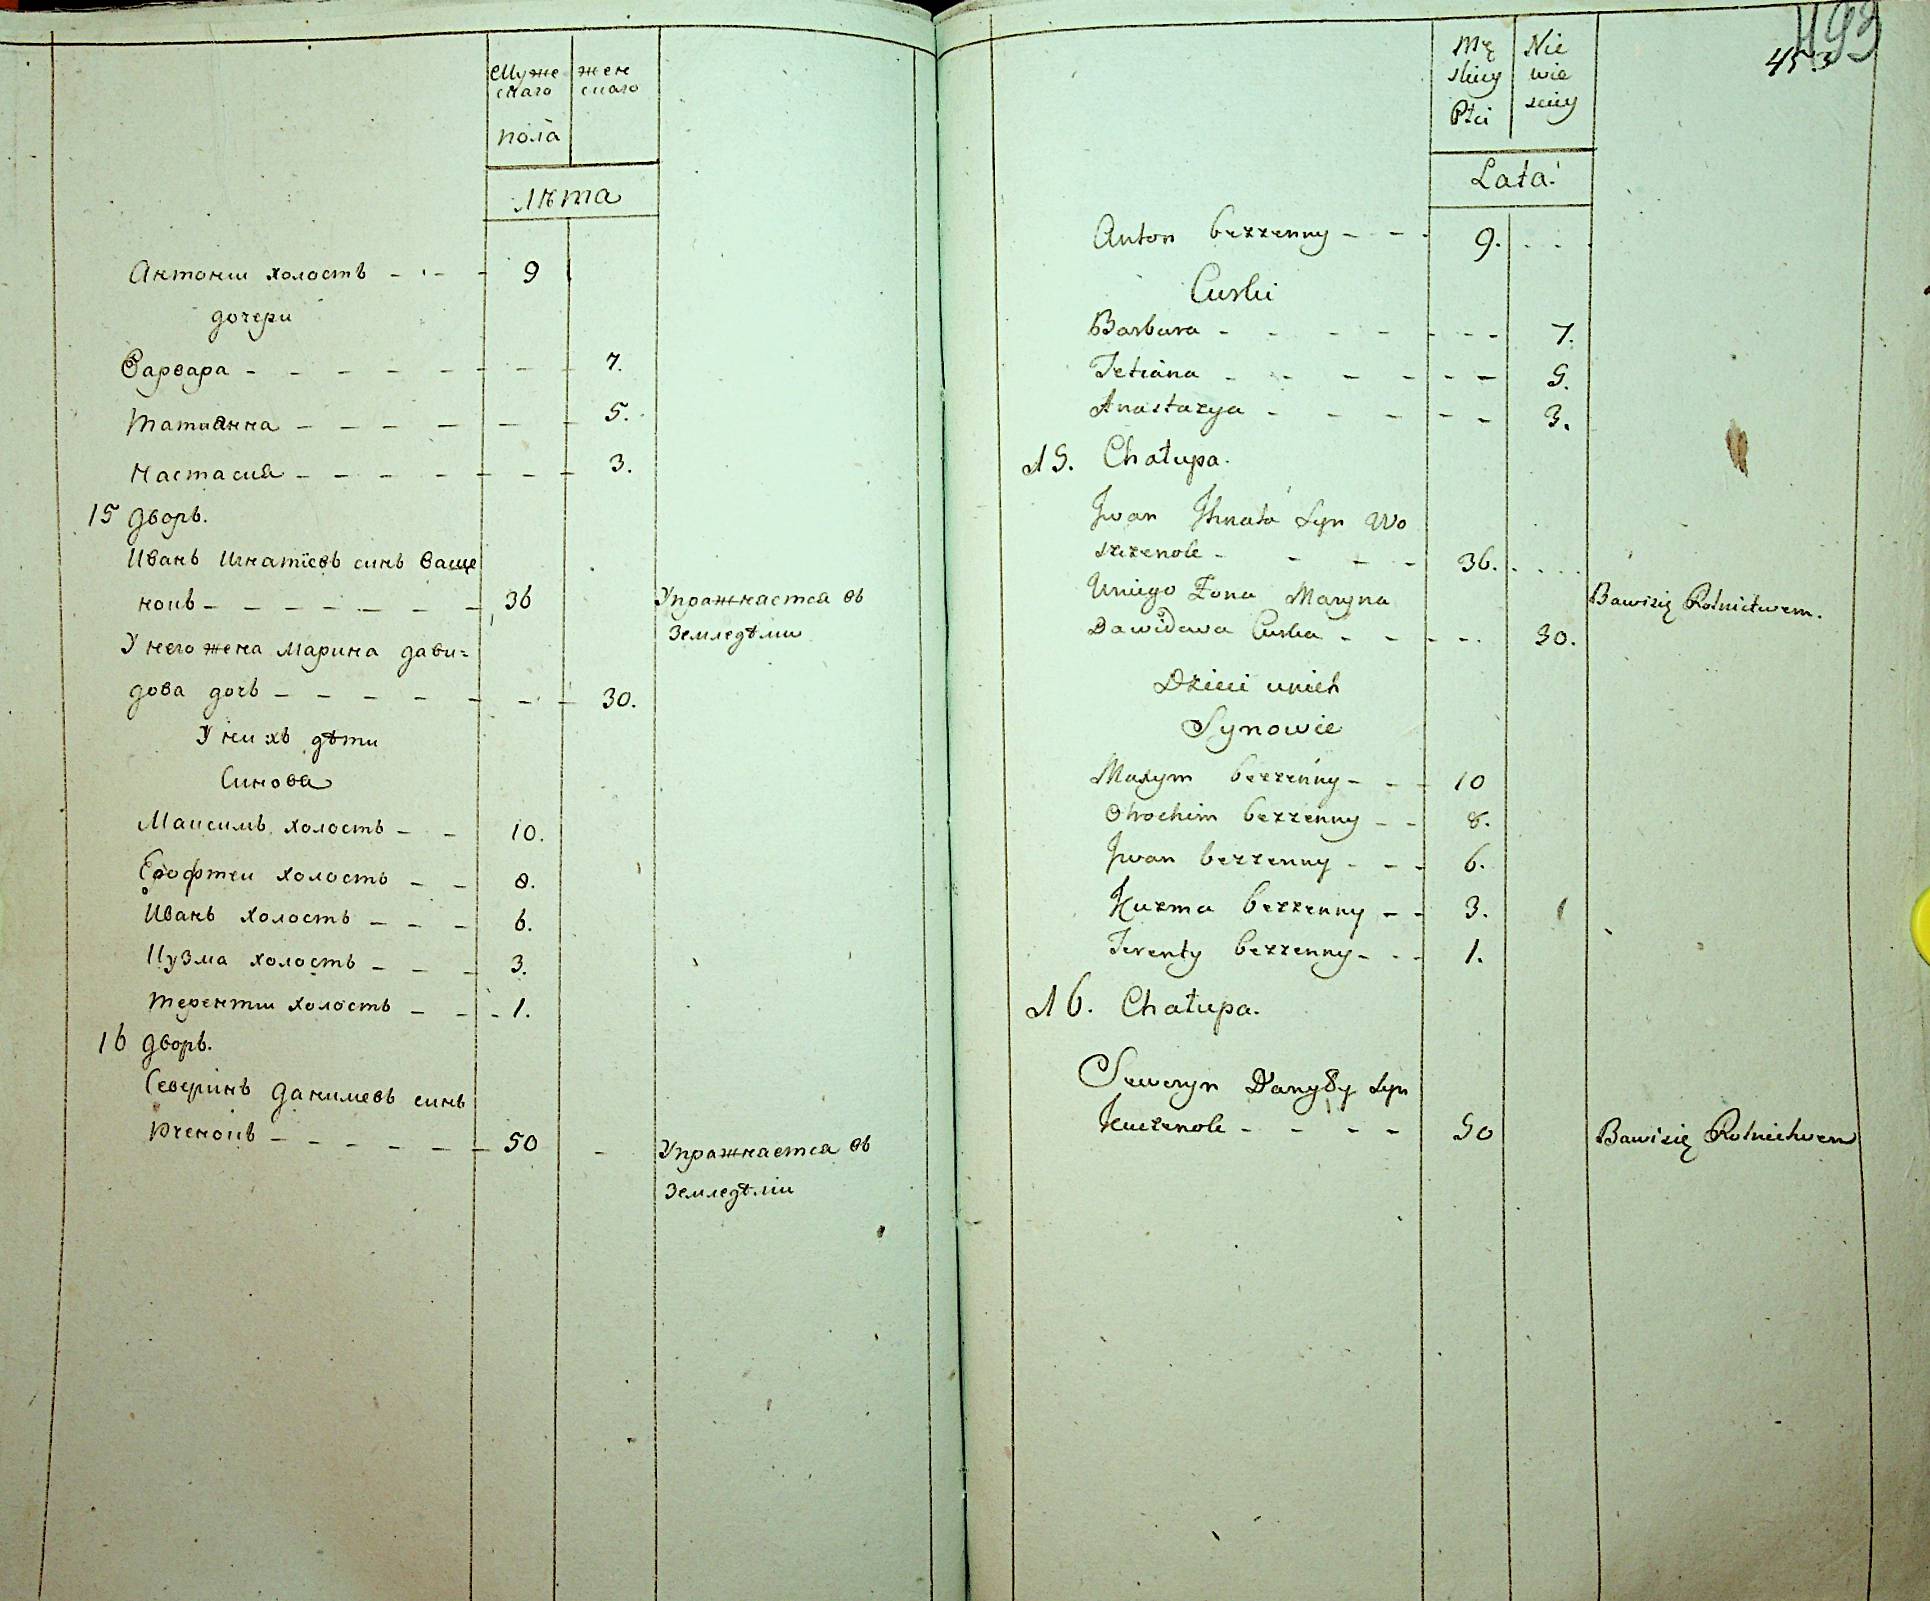 Муже
скаго
жен
скаго
пола
Лѣта
Антонiи холостъ - - - 9
дочери
Варвара - - - - - - - 7.
Татианна - - - - - - 5.
Настасия - - - - - - 3.
15 дворъ.
Иванъ Игнатiевъ синъ Ваще
нокъ - - - - - - - 36
Упражняется въ
Земледѣлии
У него жена Марина дави=
дова дочь - - - - - - - 30.
У нихъ дѣти
Синова
Максимъ холостъ - - 10.
Ерофтеи холостъ - - 8.
Иванъ холостъ - - - 6.
Кузма холостъ - - - 3.
Терентiи холостъ - - - 1.
16 дворъ.
Северинъ Данилевъ синъ
- - - - - - 50 -
Упражняется въ
Земледѣлiи
453
Mę
skiey
Płci
Nie
wie
sciey
Lata
Anton bezzenny - - - 9. . . .
Curki
Barbara - - - - - - - 7.
Tetiana - - - - - - - 5.
Anastazya - - - - - - 3.
15. Chałupa.
Jwan Ihnata Syn Wo
szczenok - - - - 36. . . . .
Uniego Zona Maryna
Bawisię Rolnictwem.
Dawidowa Curka - - - - 30.
Dzieci unich
Synowie
Maxym bezzenny - - - 10
Ohrochim bezzenny - - 8.
Jwan bezzenny - - - 6.
Kuzma bezzenny - - 3.
Terenty bezzenny - - - 1.
16. Chałupa.
Seweryn Danyły Syn
Kuczenok - - - - 50
Bawisię Rolnictwem